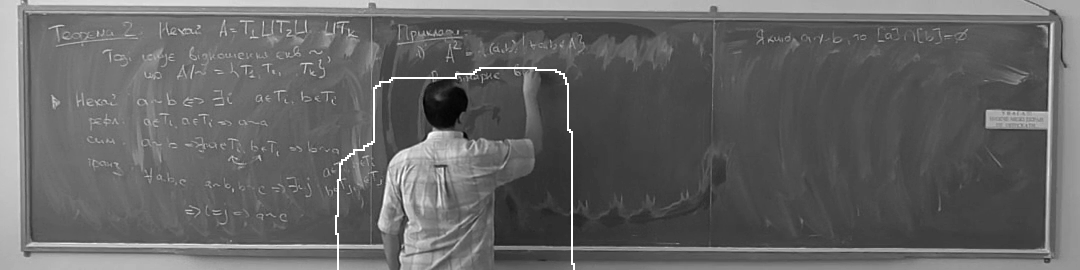 Теорема 2. Нехай A = T₁ ⊔ T₂ ⊔ ... ⊔ Tₖ
Тоді існує відношення екв ~,
що A/~ = {T₁, T₂, ..., Tₖ}
Нехай a~b ⇔ ∃i a∈Tᵢ, b∈Tᵢ
рефл: a∈Tᵢ, a∈Tᵢ ⇒ a~a
сим: a~b ⇒ ∃i a∈Tᵢ, b∈Tᵢ ⇒ b~a
транз: ∀a,b,c a~b, b~c ⇒ ∃i,j
⇒ i=j ⇒ a~c
Приклади:
1) A² = {(a,b) | a,b∈A}
Якщо a≁b, то [a]∩[b]=∅
УВАГА!